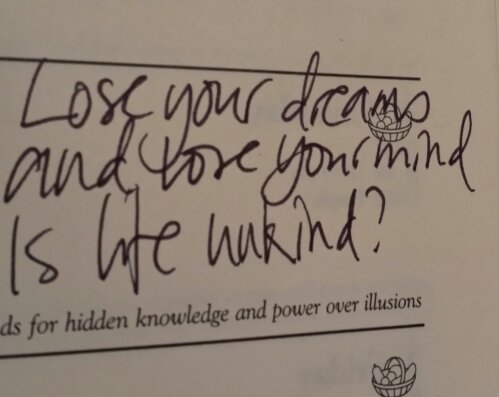 Lose your dreams
and lose your mind
Is life unkind?
ds for hidden knowledge and power over illusions